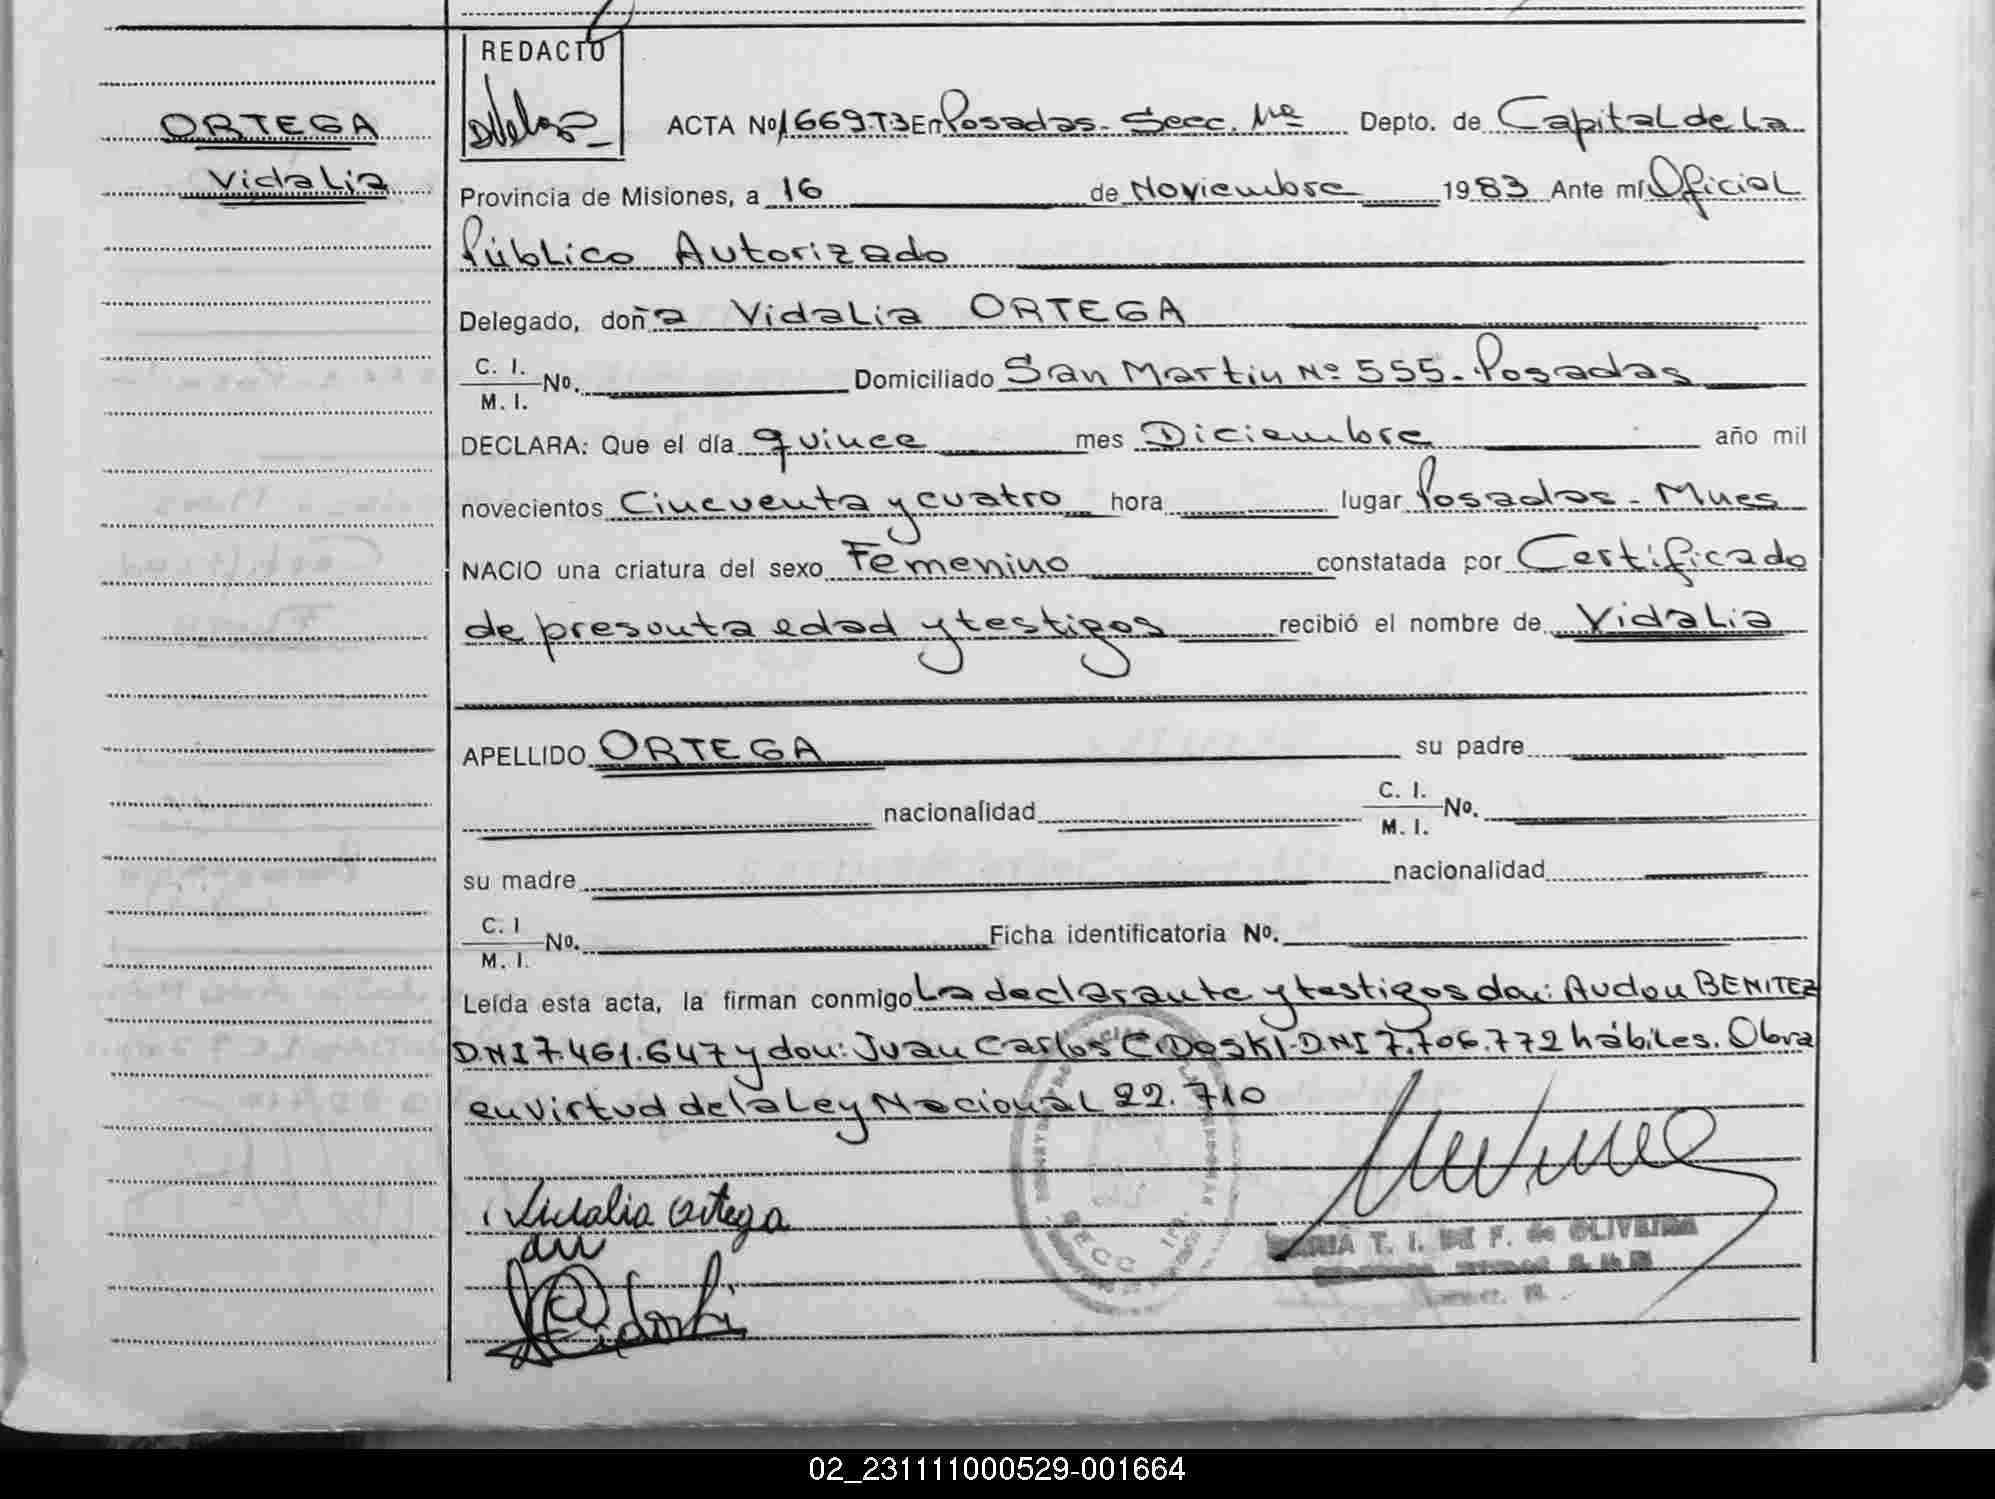 REDACTO
ORTEGA
Vidalia
ACTA Nº 1669.T3 En Posadas. Secc. 1ra Depto. de Capital de la
Provincia de Misiones, a 16 de Noviembre 1983 Ante mí Oficial
Público Autorizado
Delegado, doña Vidalia ORTEGA
C. I.
M. I. Nº. Domiciliado San Martin Nº 555. Posadas
DECLARA: Que el día quince mes Diciembre año mil
novecientos Cincuenta y cuatro hora lugar Posadas - Mnes
NACIO una criatura del sexo Femenino constatada por Certificado
de presunta edad y testigos recibió el nombre de Vidalia
APELLIDO ORTEGA su padre
nacionalidad C. I.
M. I. Nº.
su madre nacionalidad
C. I
M. I. Nº. Ficha identificatoria Nº.
Leída esta acta, la firman conmigo La declarante y testigos don: Audon BENITEZ
D.N.I 7.461.647 y don: Juan Carlos CIDOSKI - DNI 7.706.772 hábiles. Obra
en virtud de la Ley Nacional 22.710
Vidalia Ortega
SECC 1ra.
MARIA T. I. DE F. de OLIVEIRA
02_231111000529-001664